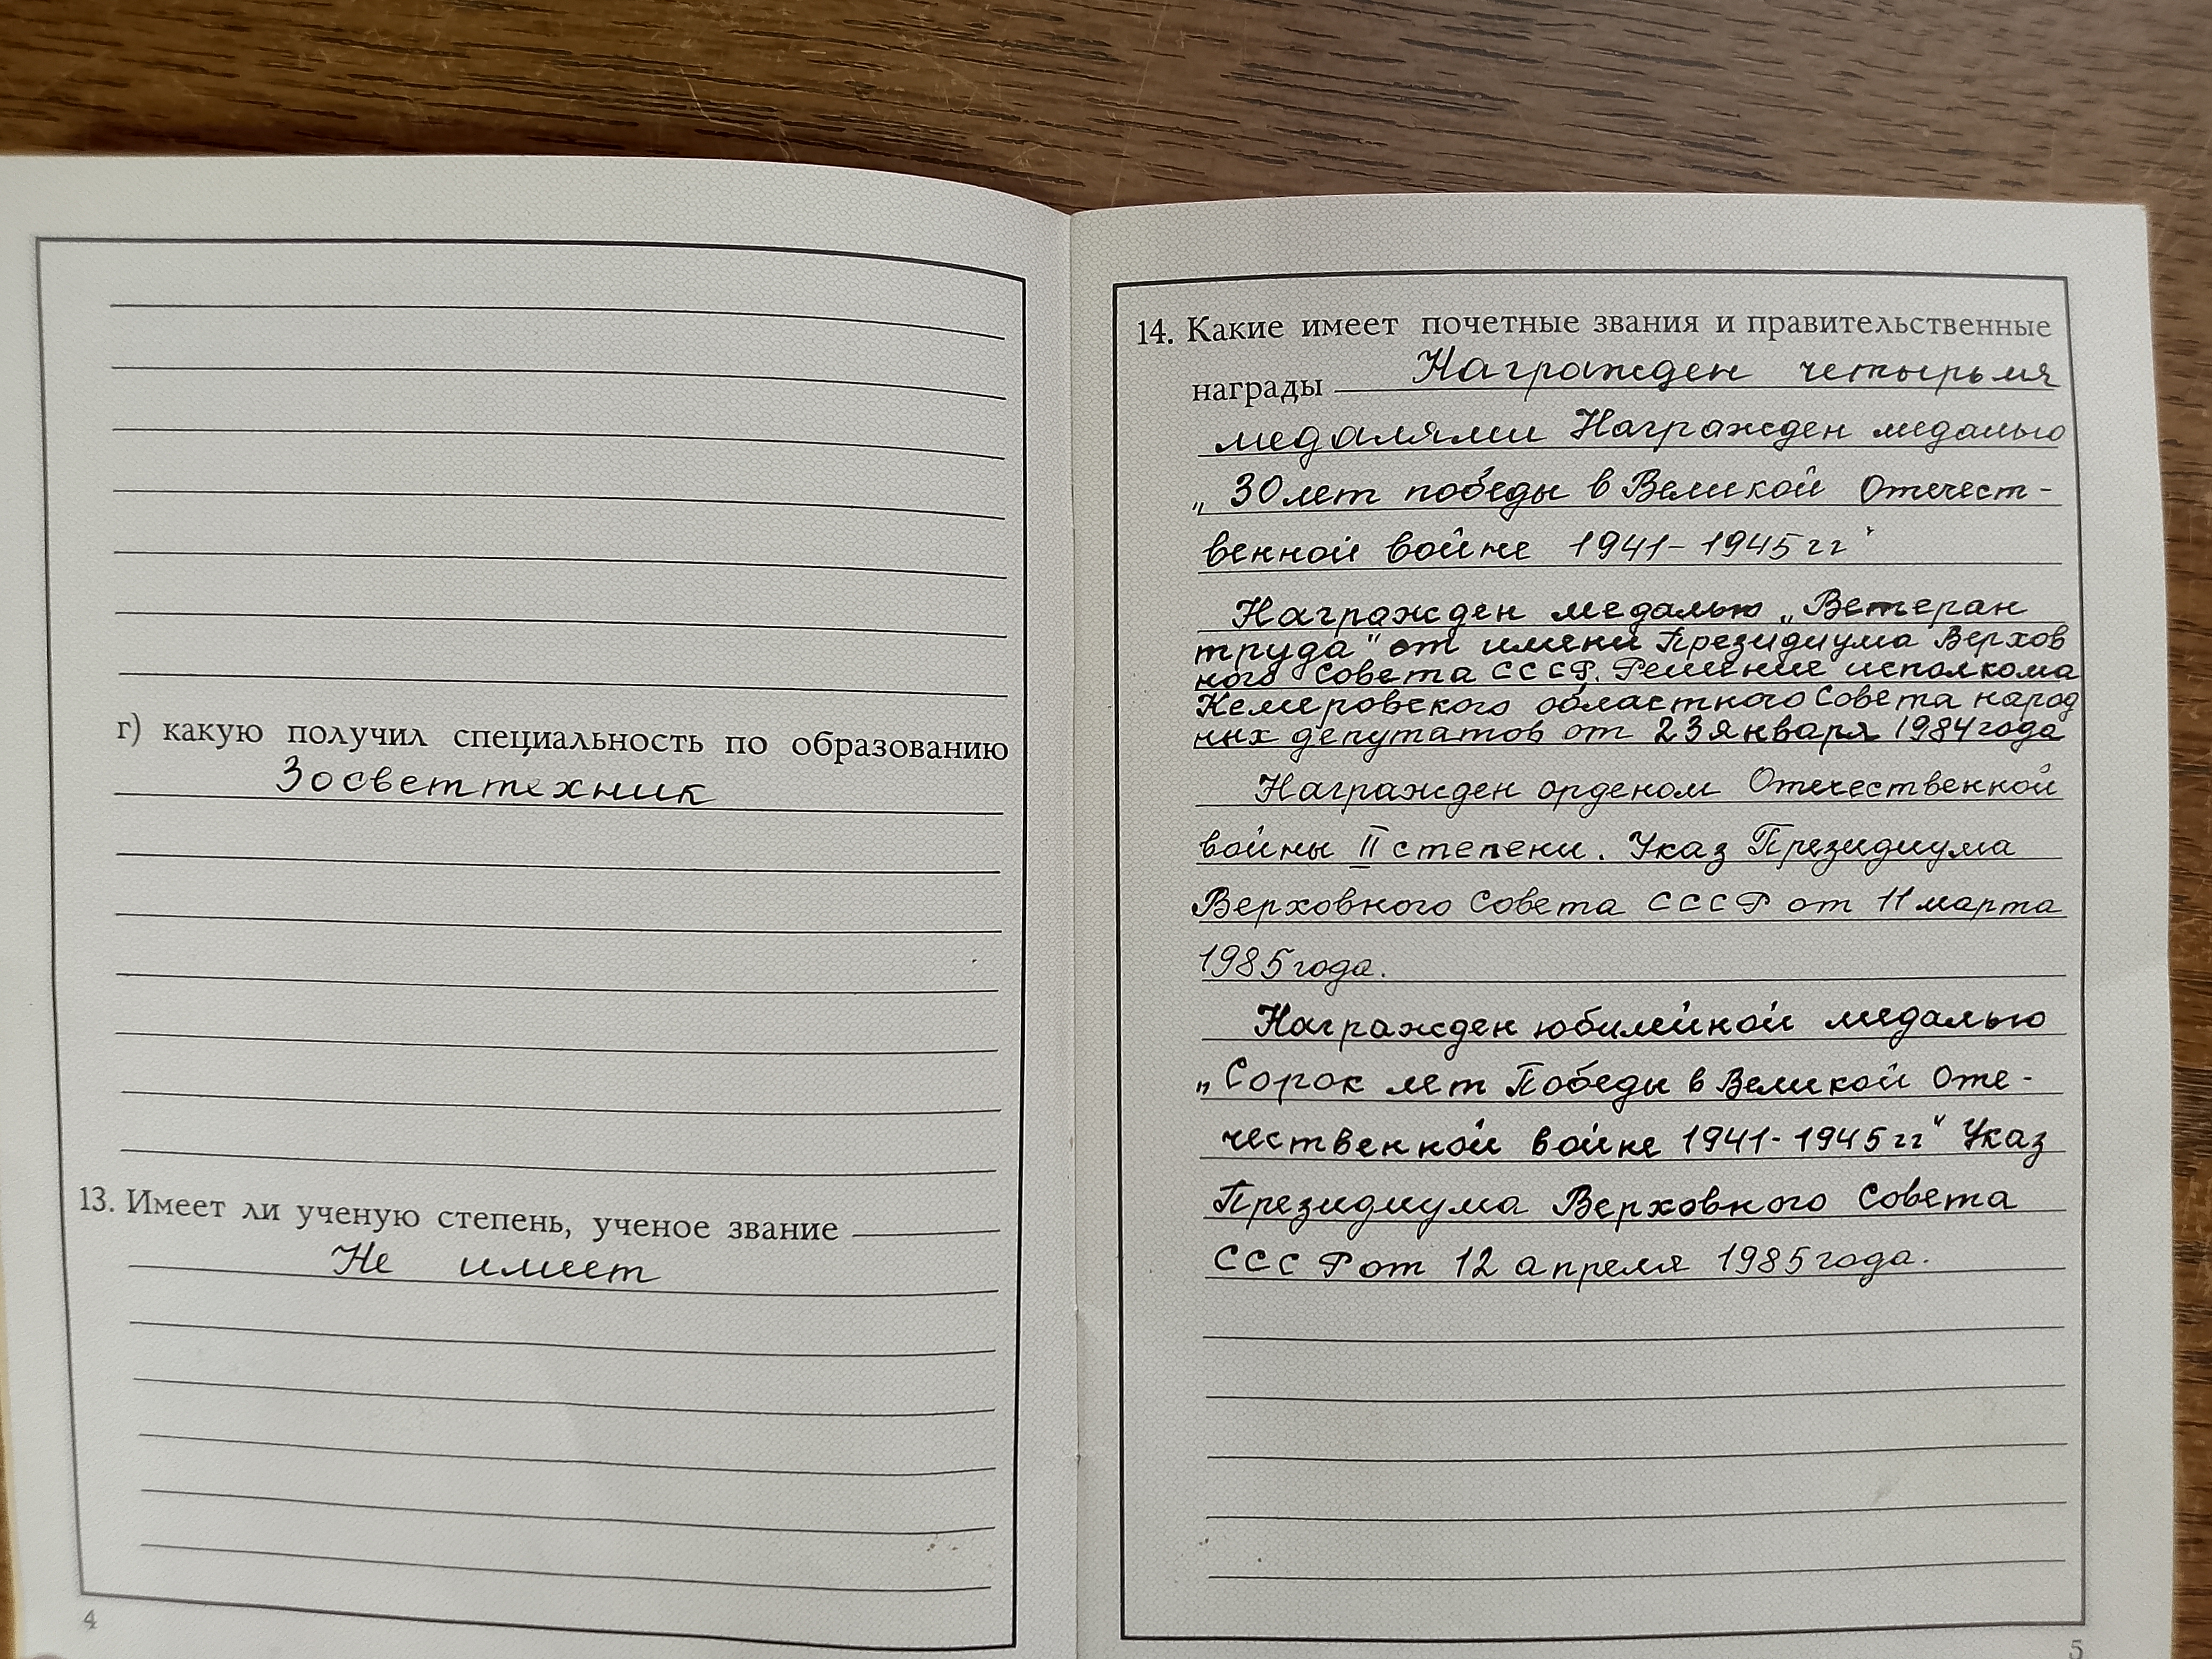 г) какую получил специальность по образованию
Зосветтехник
13. Имеет ли ученую степень, ученое звание
Не имеет
4
14. Какие имеет почетные звания и правительственные
награды Награжден четырьмя
медалями Награжден медалью
„30 лет победы в Великой Отечест-
венной войне 1941-1945 гг"
Награжден медалью „Ветеран
труда" от имени Президиума Верхов
ного Совета СССР. Решение исполкома
Кемеровского областного Совета народ
ных депутатов от 23 января 1984 года
Награжден орденом Отечественной
войны II степени. Указ Президиума
Верховного Совета СССР от 11 марта
1985 года.
Награжден юбилейной медалью
„Сорок лет Победы в Великой Оте-
чественной войне 1941-1945 гг" Указ
Президиума Верховного Совета
СССР от 12 апреля 1985 года.
5